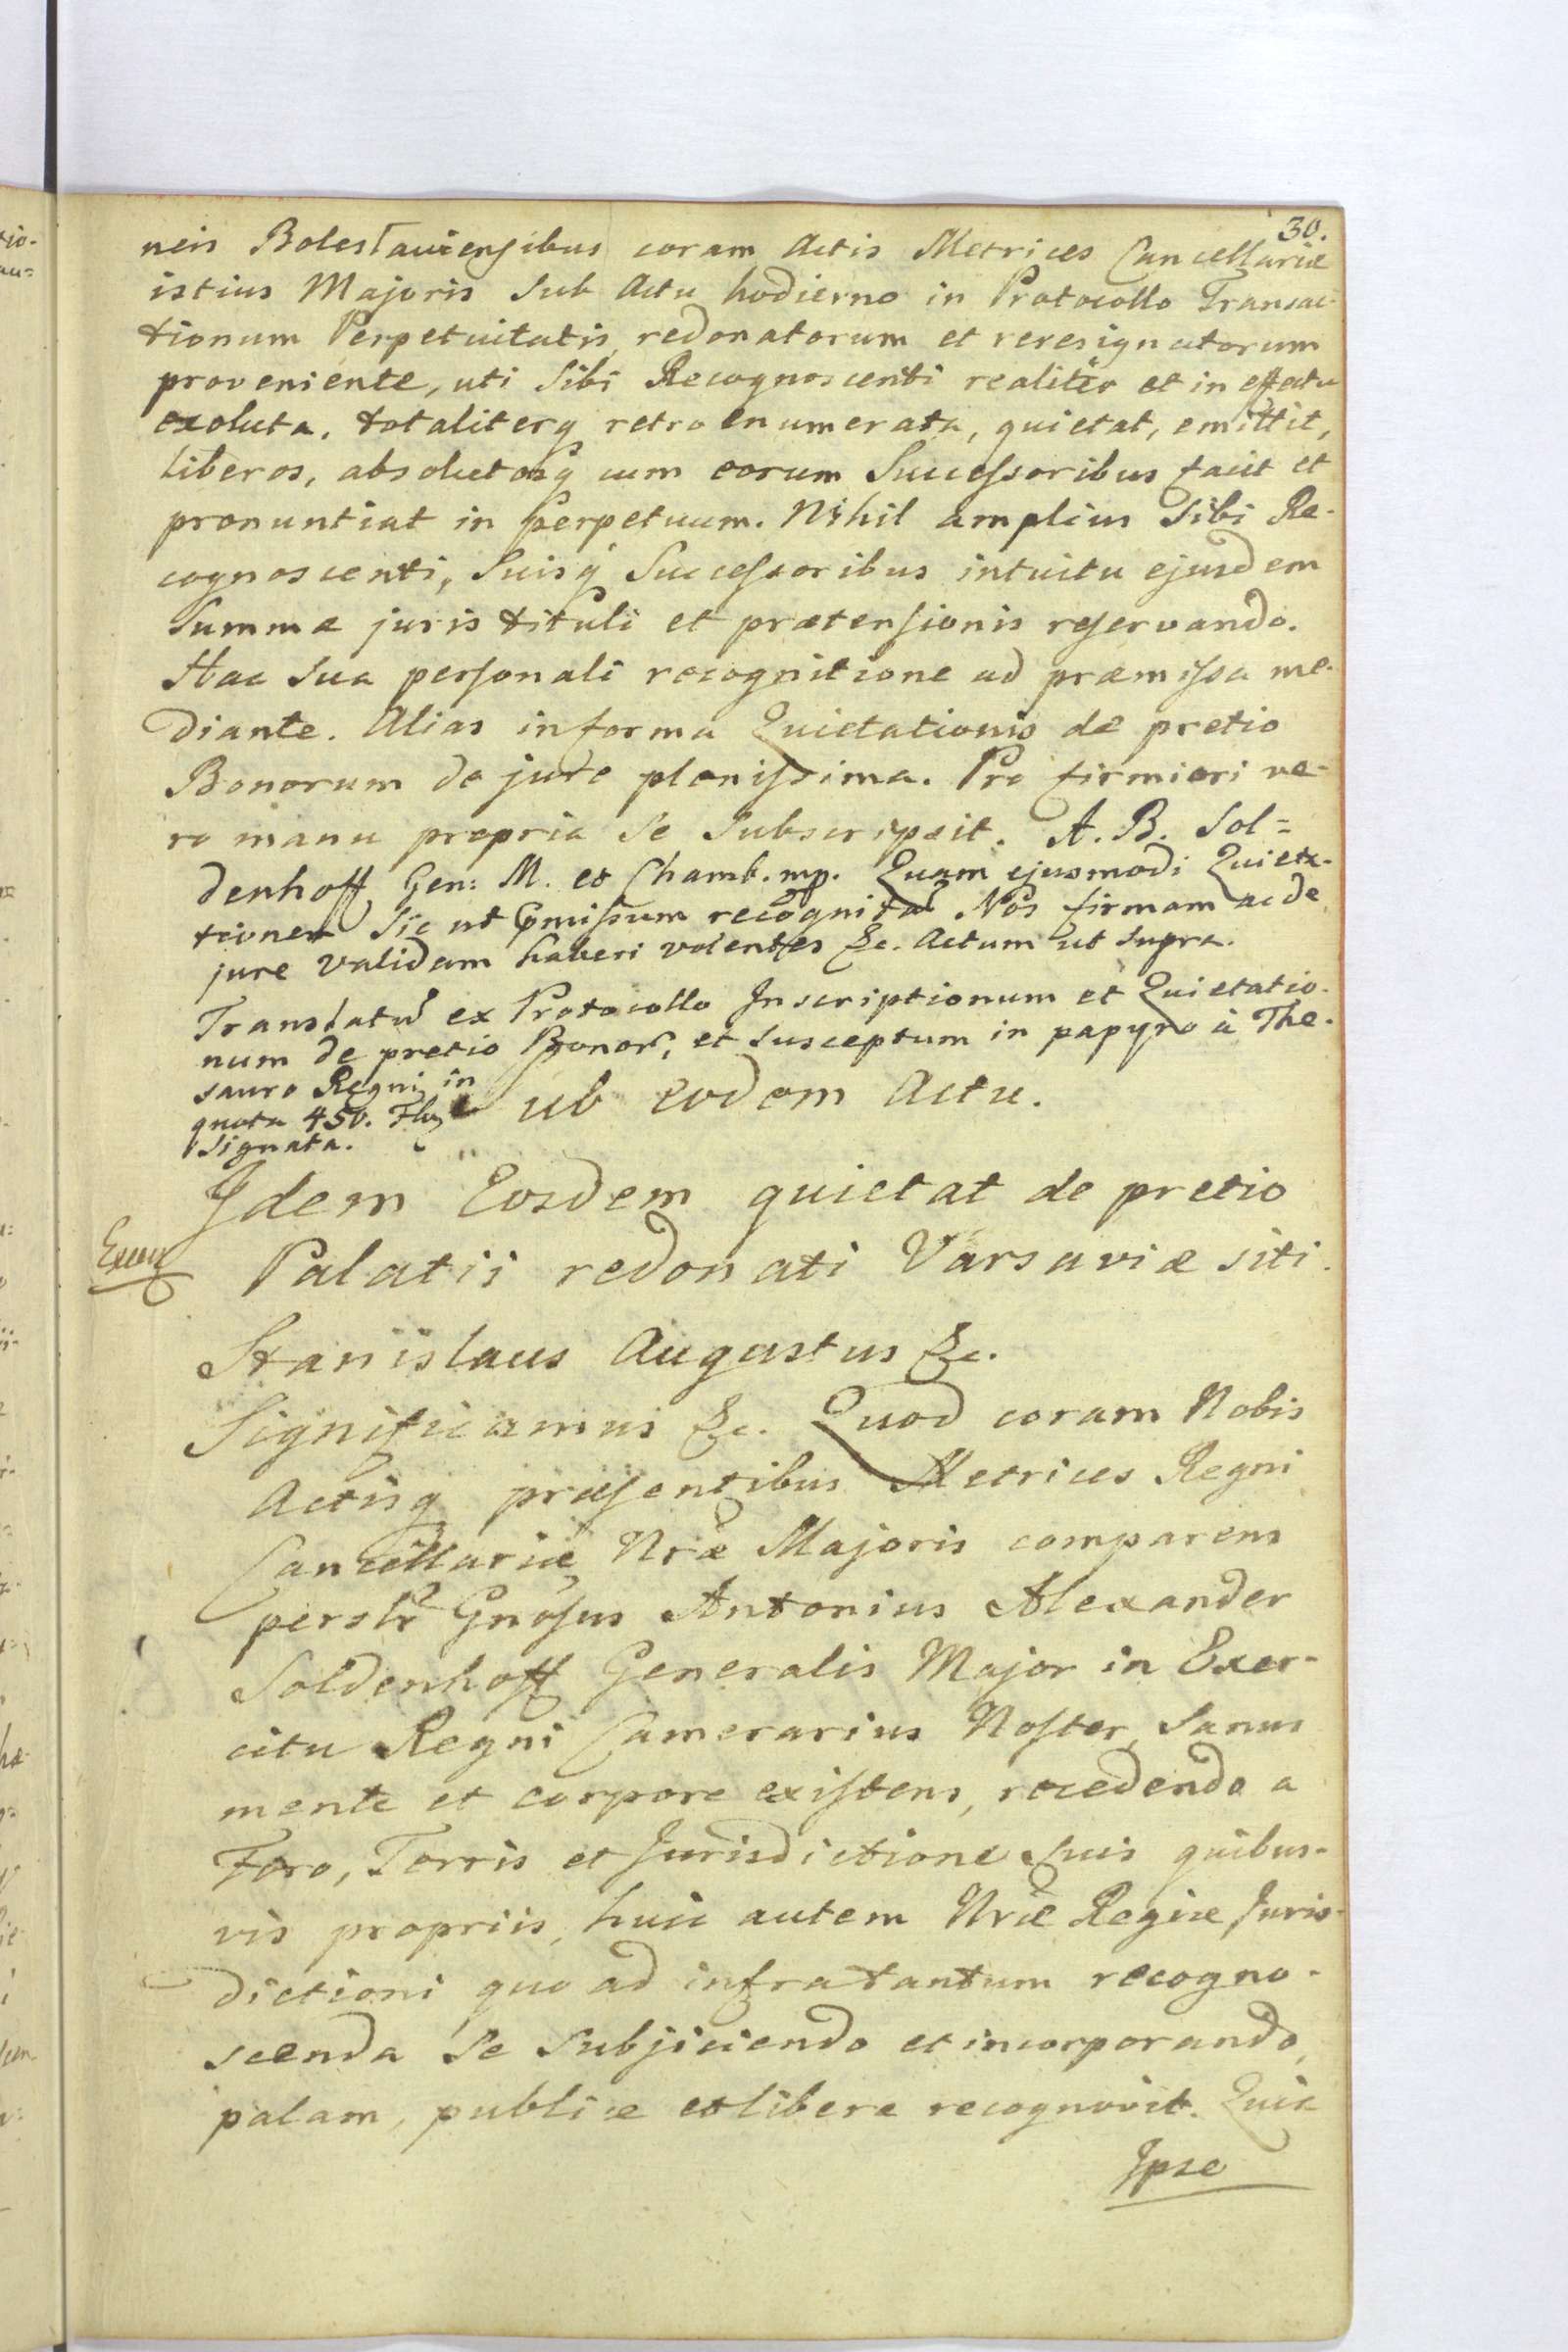 30.
neis Boleslaviensibus coram Actis Metrices Cancellariæ
istius Majoris Sub Actu hodierno in Protocollo Transac-
tionum Perpetuitatis, redonatorum et reresignatorum
proveniente, uti Sibi Recognoscenti realiter et in effectu
exoluta, totaliterq retro enumerata, quietat, emittit,
liberos, absolutosq cum eorum Successoribus facit et
pronuntiat in perpetuum. Nihil amplius Sibi Re-
cognoscenti, Suisq Successoribus intuitu ejusdem
Summæ juris tituli et prætensionis reservando.
Hac Sua personali recognitione ad præmissa me-
diante. Alias in forma Quietationis de pretio
Bonorum de jure plenissima. Pro firmiori ve-
ro manu propria Se Subscripsit. A. B. Sol=
denhoff Gen: M. et Chamb. mp. Quam ejusmodi Quieta-
tionem Sic ut pmissum recognitā Nos firmam ac de
jure validam haberi volentes &c. Actum ut Supra.
Translatū ex Protocollo Inscriptionum et Quietatio-
num de pretio Bonor, et Susceptum in papyro à The-
sauro Regni in
quota 450. Flor
Signata.
Sub eodem Actu.
Idem Eosdem quietat de pretio
Palatii redonati Varsaviæ siti.
Stanislaus Augustus &c.
Significamus &c. Quod coram Nobis
Actisq præsentibus Metrices Regni
Cancellariæ Nræ Majoris comparens
perslr Gnosus Antonius Alexander
Soldenhoff Generalis Major in Exer-
citu Regni Camerarius Noster, Sanus
mente et corpore existens, recedendo a
Foro, Terris et Jurisdictione Suis quibus-
vis propriis, huic autem Nræ Regiæ Juris-
dictioni quo ad infra tantum recogno-
scenda Se Subjiciendo et incorporando,
palam, publice et libere recognovit. Quia
Ipse